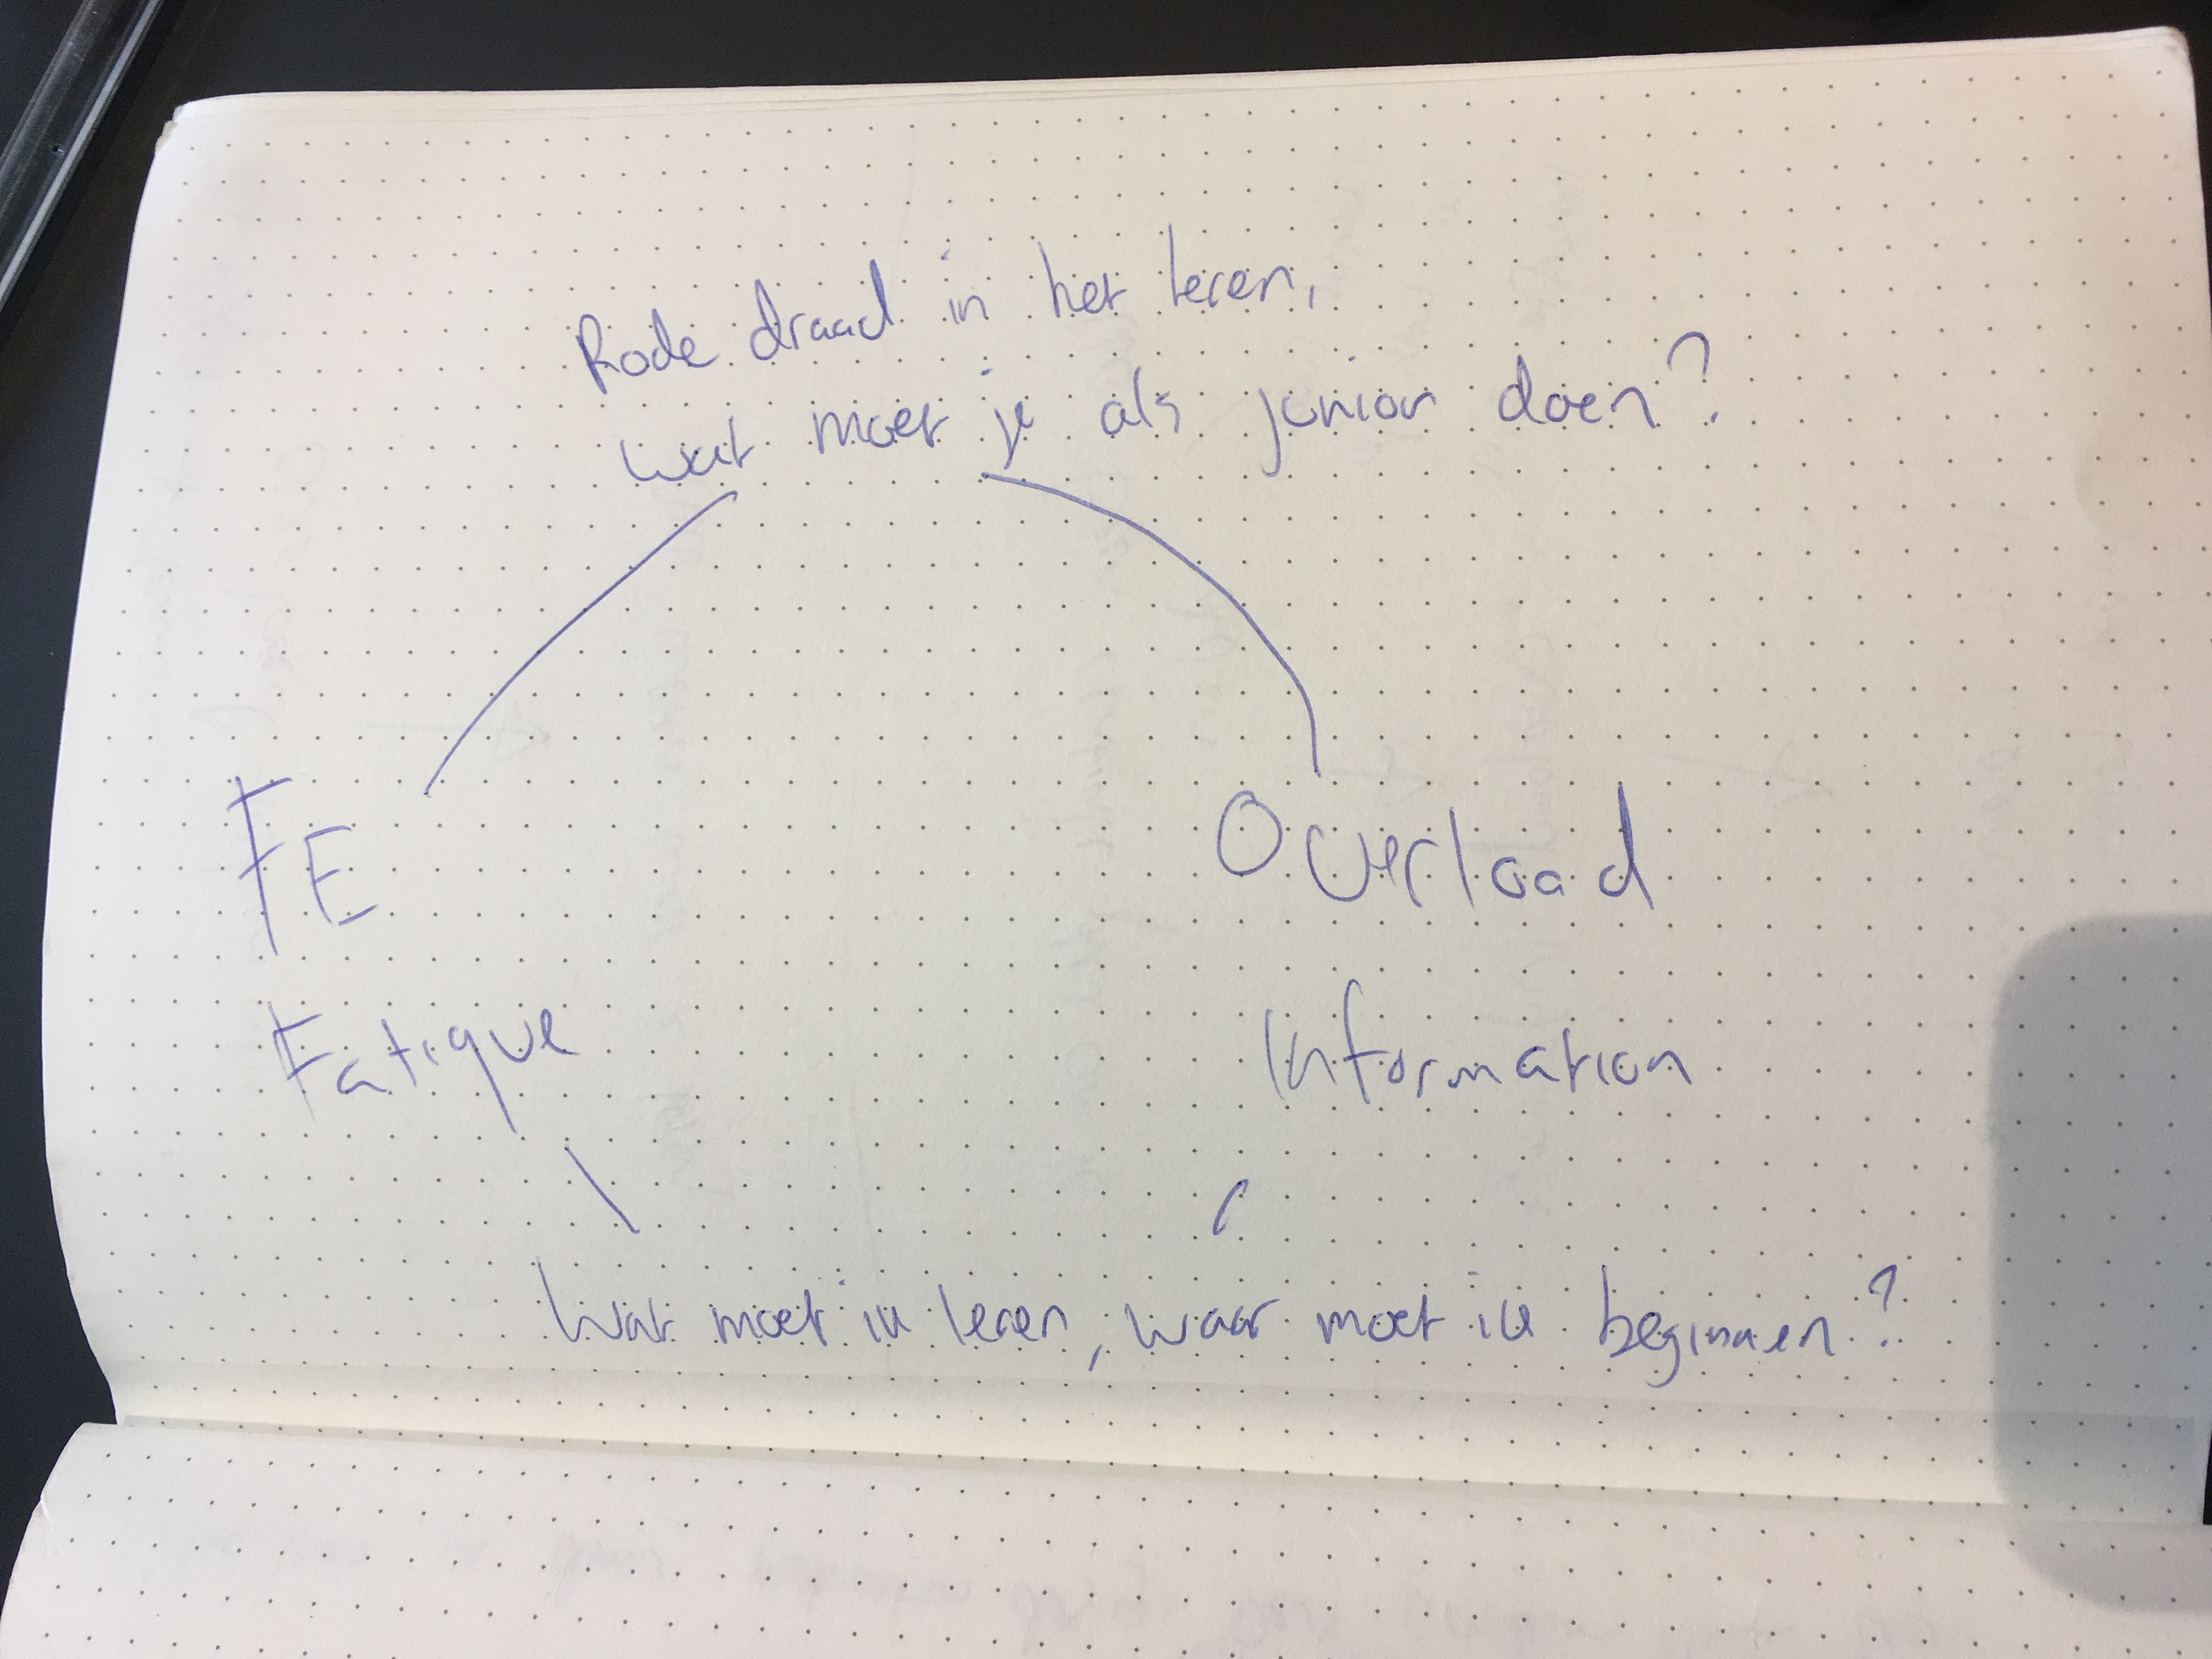 Rode draad in het leren,
wat moet je als junior doen?
FE
Overload
Fatique
Information
Wat moet ik leren, waar moet ik beginnen?